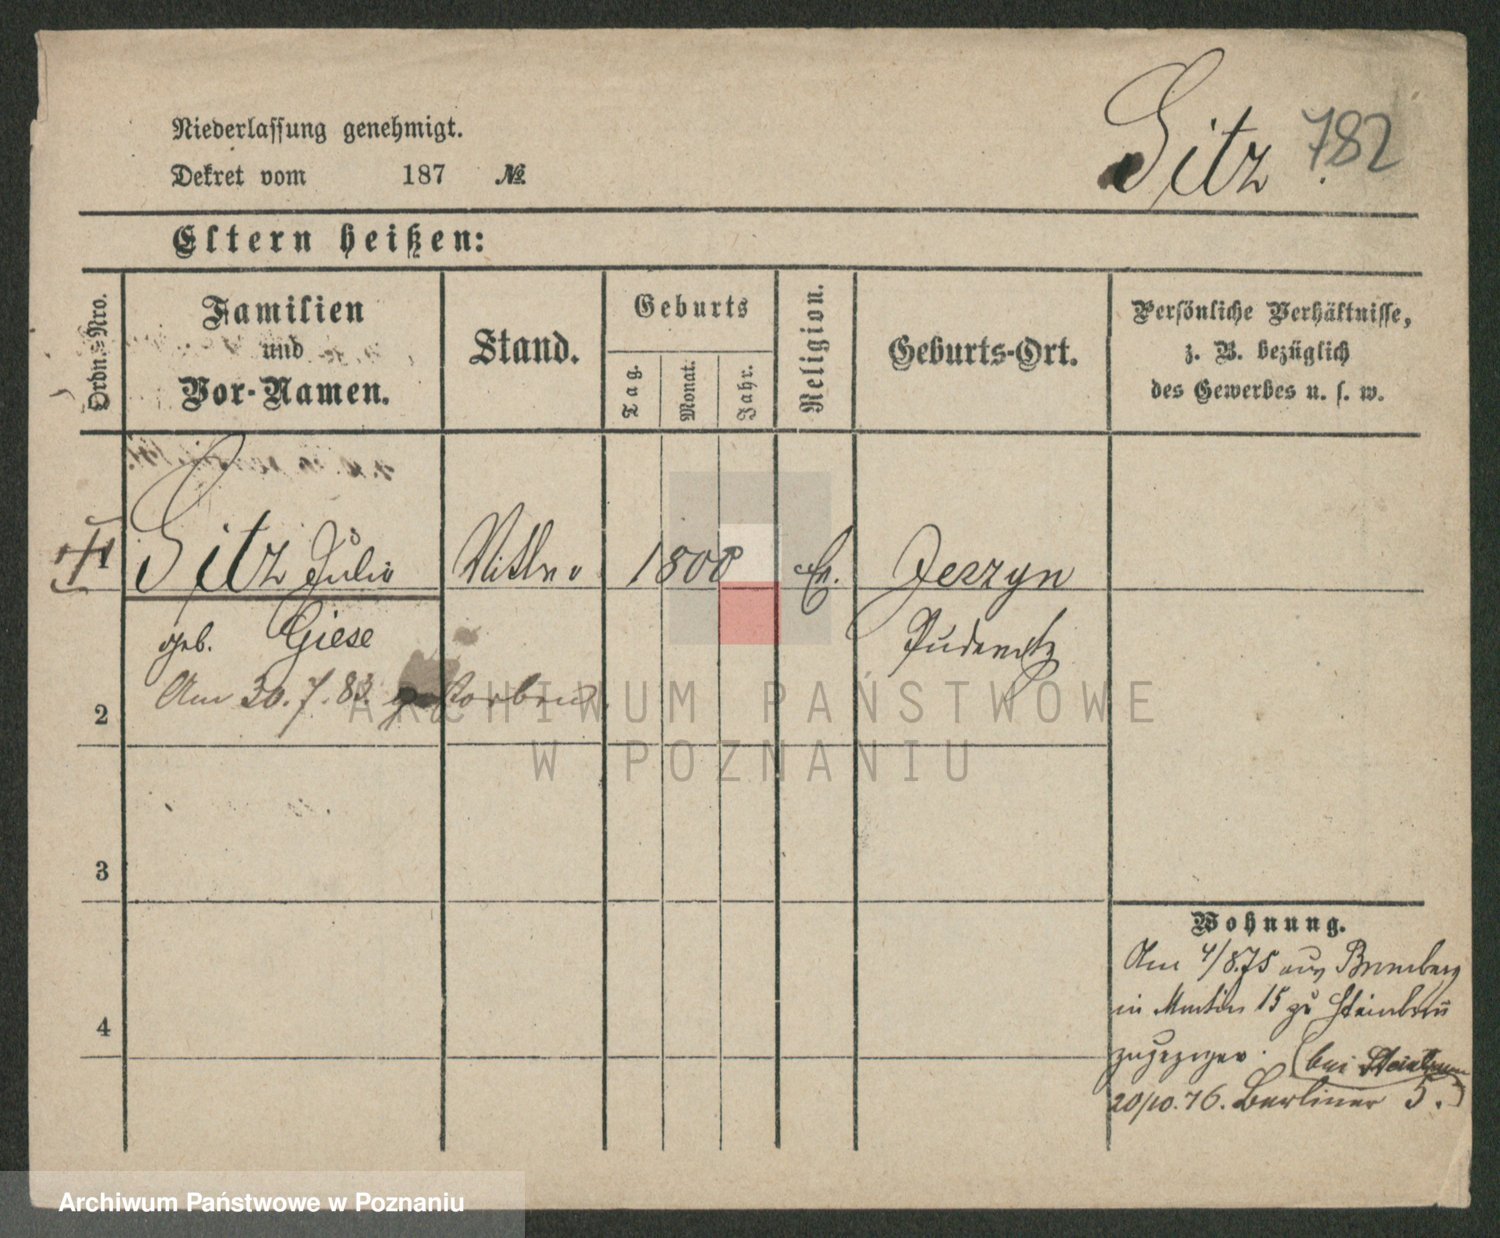 Niederlassung genehmigt.
Dekret vom 187 №
Sitz 782
Eltern heißen:
Ordn.-Nro.
Familien und Vor-Namen.
Stand.
Geburts
Tag.
Monat.
Jahr.
Religion.
Geburts-Ort.
Persönliche Verhältnisse,
z. B. bezüglich
des Gewerbes u. s. w.
1 Sitz Julie 1800 Ev. Jerzyn
geb. Giese Pudewitz
Am 30.7.83. gestorben.
2
3
4
Wohnung.
Am 4/8.75 aus Bromberg
in Martin 15 zu
zugezogen. (bei
20/10.76. Berliner 5.)
ARCHIWUM PAŃSTWOWE
W POZNANIU
Archiwum Państwowe w Poznaniu